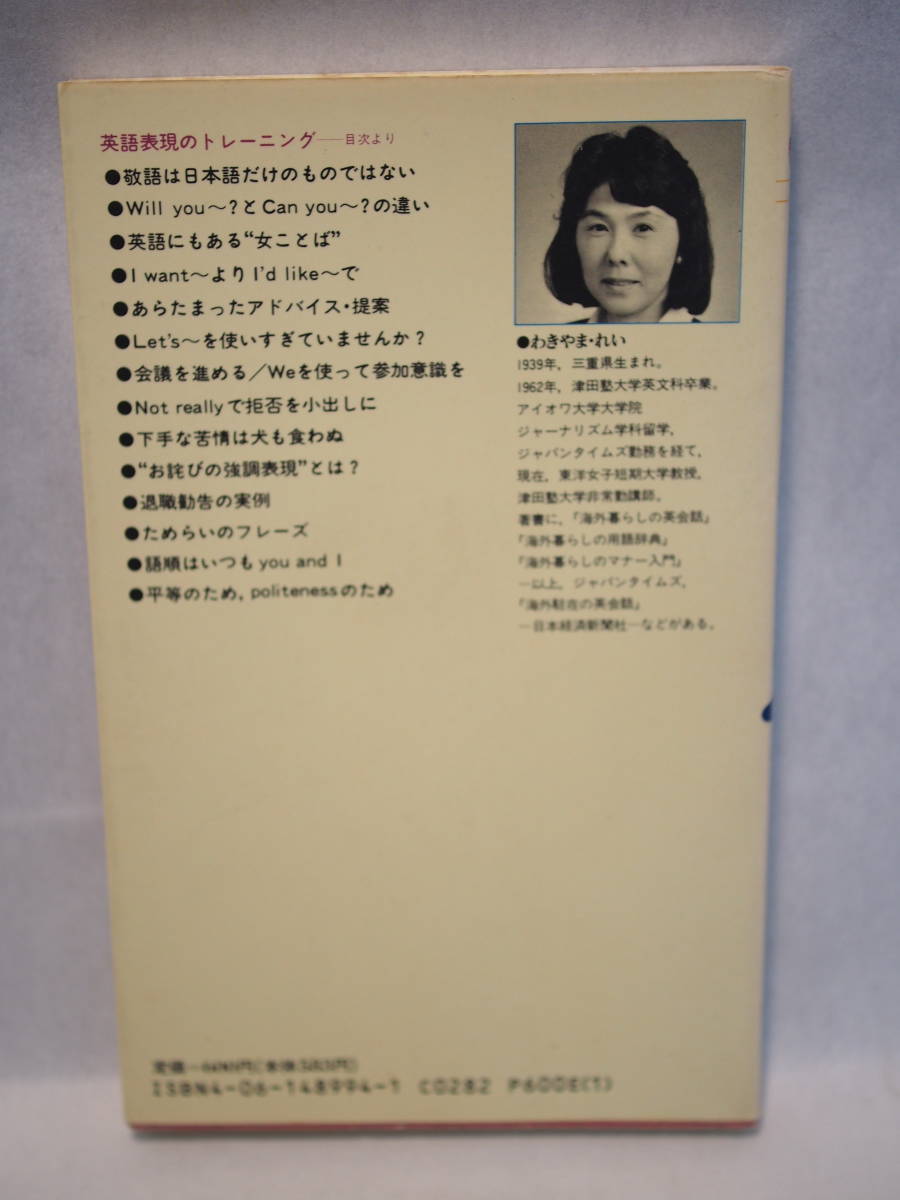 英語表現のトレーニング──目次より
●敬語は日本語だけのものではない
●Will you〜?とCan you〜?の違い
●英語にもある“女ことば”
●I want〜よりI'd like〜で
●あらたまったアドバイス・提案
●Let's〜を使いすぎていませんか?
●会議を進める/Weを使って参加意識を
●Not reallyで拒否を小出しに
●下手な苦情は犬も食わぬ
●“お詫びの強調表現”とは?
●退職勧告の実例
●ためらいのフレーズ
●語順はいつもyou and I
●平等のため,politenessのため
●わきやま・れい
1939年,三重県生まれ。
1962年,津田塾大学英文科卒業。
アイオワ大学大学院
ジャーナリズム学科留学。
ジャパンタイムズ勤務を経て,
現在,東洋女子短期大学教授,
津田塾大学非常勤講師。
著書に,『海外暮らしの英会話』
『海外暮らしの用語辞典』
『海外暮らしのマナー入門』
―以上,ジャパンタイムズ,
『海外駐在の英会話』
―日本経済新聞社―などがある。
定価
ISBN4-06-148994-1 C0282 P600E(1)